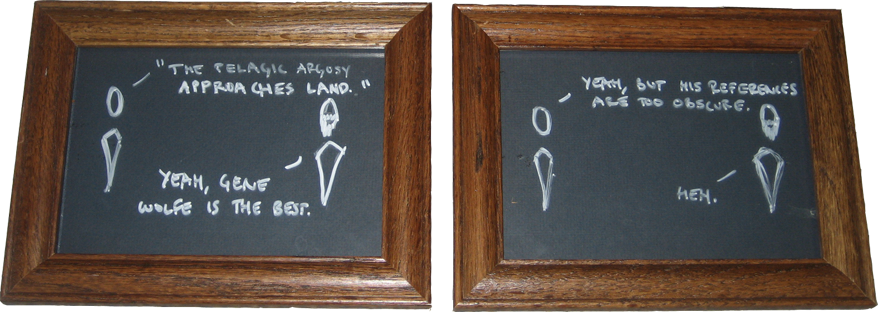 "THE PELAGIC ARGOSY
APPROACHES LAND."
YEAH, GENE
WOLFE IS THE BEST.
YEAH, BUT HIS REFERENCES
ARE TOO OBSCURE.
HEH.